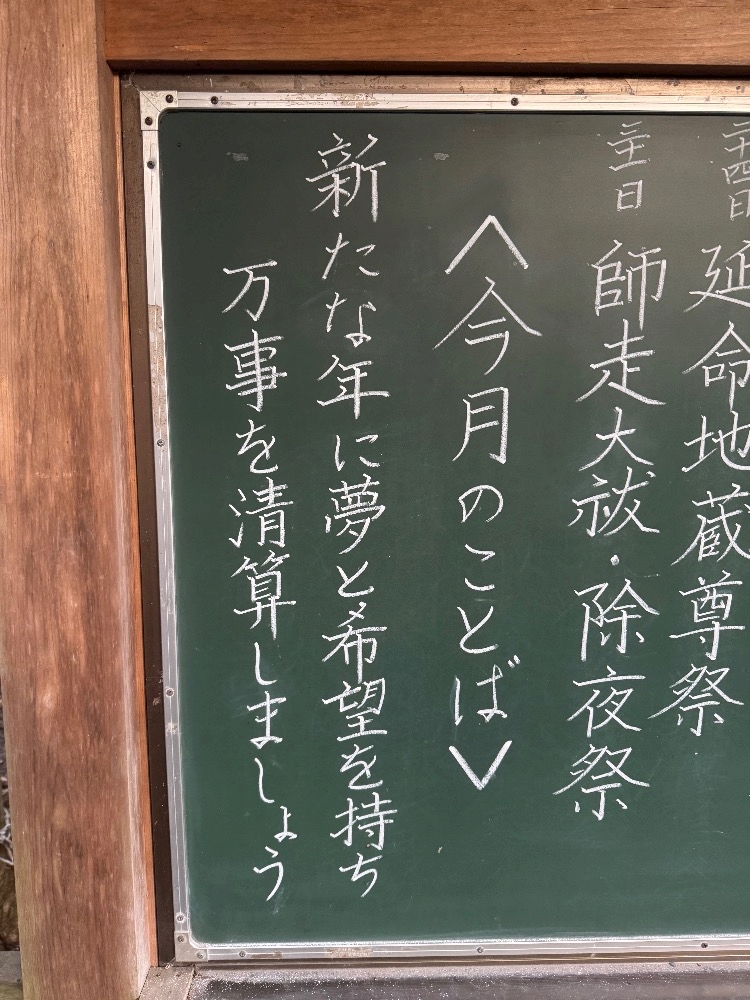 二十四日 延命地蔵尊祭
三十一日 師走大祓・除夜祭
〈今月のことば〉
新たな年に夢と希望を持ち
万事を清算しましょう